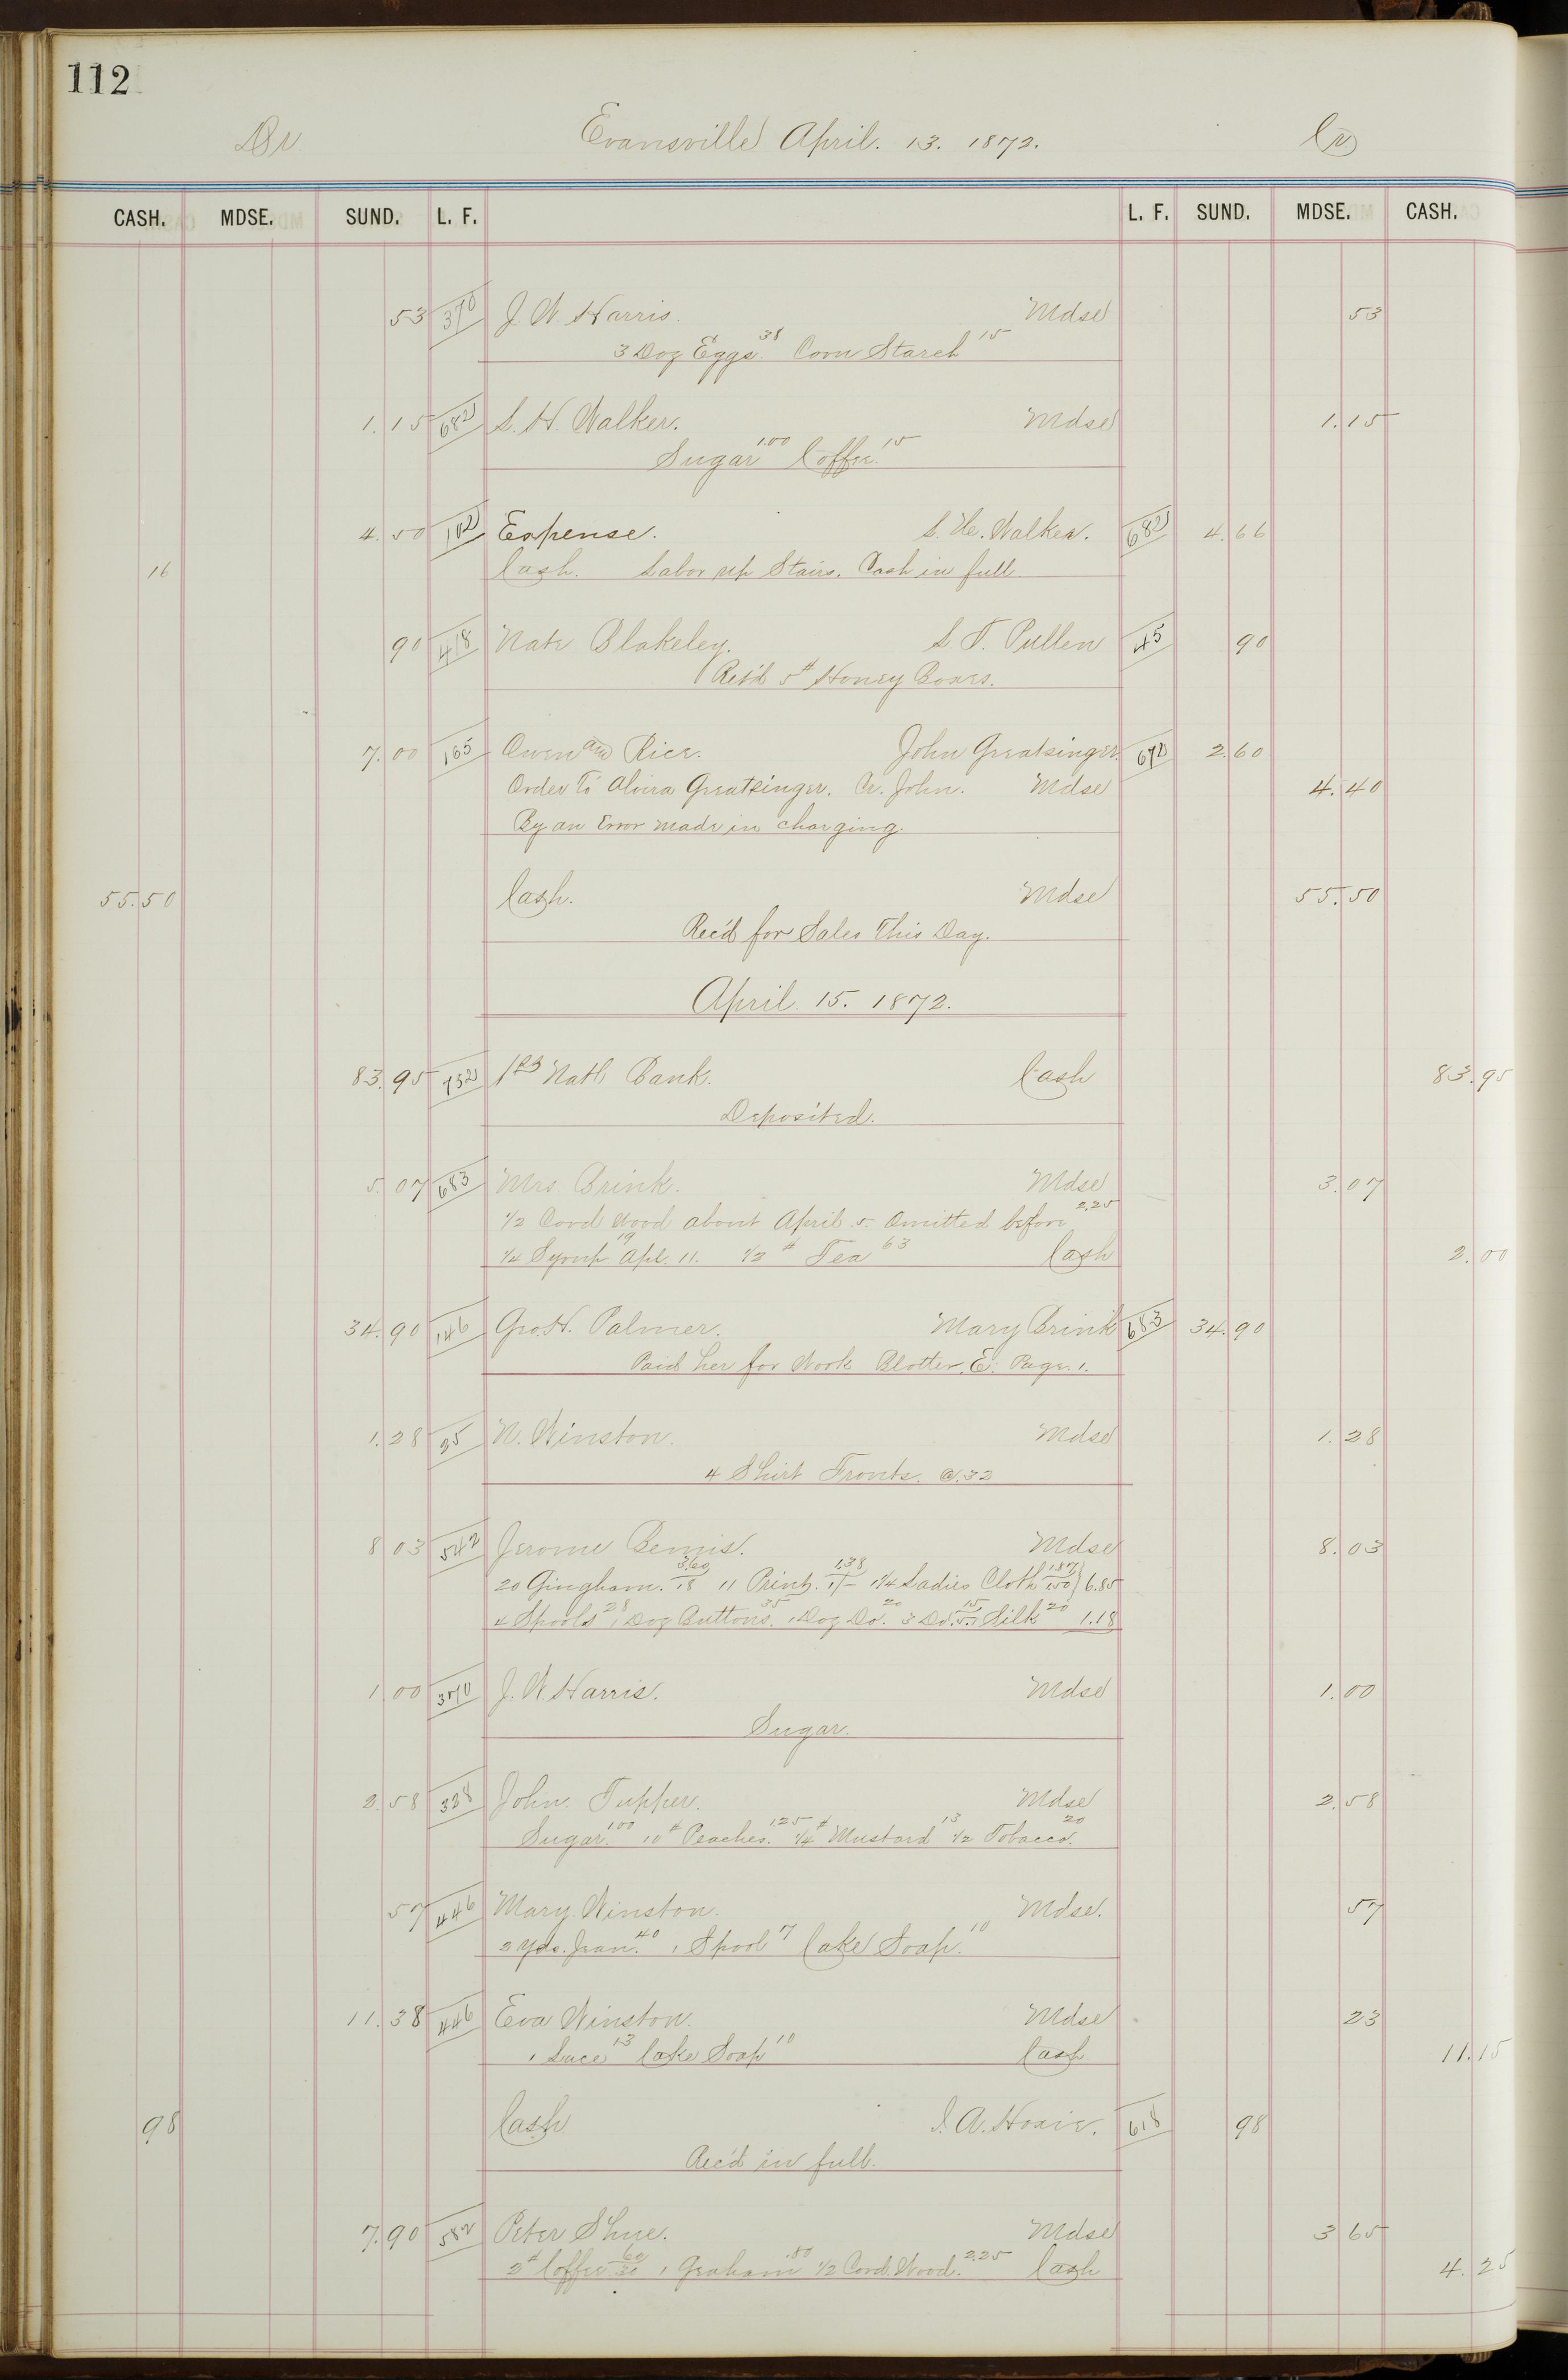 112
Dr Evansville April. 13. 1872. Cr
CASH. MDSE. SUND. L. F. L. F. SUND. MDSE. CASH.
53 370 J. W. Harris. Mdse 53
3 Doz Eggs 38 Corn Starch 15
1.15 682 S. H. Walker. Mdse 1.15
Sugar 1.00 Coffee 15
4.50 102 Expense. S. H. Walker. 682 4.66
16 Cash. Labor up Stairs. Cash in full
90 418 Nate Blakeley. S. T. Pullen 45 90
Ret'd 5 # Honey Boxes.
7.00 165 Owen and Rice. John Greatsinger. 672 2.60
Order To Alvira Greatsinger. Cr. John. Mdse 4.40
By an Error made in charging.
55.50 Cash. Mdse 55.50
Rec'd for Sales This Day.
April 15. 1872.
83.95 752 1st Natl Bank. Cash 83.95
Deposited.
5.07 683 Mrs Brink. Mdse 3.07
1/2 Cord Wood about April 5. Omitted before 2.25
1/4 Syrup 19 Apl. 11. 1/2 # Tea 63 Cash 2.00
34.90 146 Geo. H. Palmer. Mary Brink 683 34.90
Paid her for Work Blotter. E. Page. 1.
1.28 35 N. Winston. Mdse 1.28
4 Shirt Fronts. @.32
8 03 542 Jerome Bemis. Mdse 8.03
20 Gingham. 3.60 18 11 Print. 1.38 1/- 1 1/4 Ladies Cloth 1.87 1.50 } 6.85
4 Spools 28 1 Doz Buttons. 35 1 Doz Do. 20 3 Do. 15 5. 1 Silk 20 1.18
1.00 370 J. W. Harris. Mdse 1.00
Sugar.
2.58 338 John Tupper. Mdse 2.58
Sugar. 1.00 10 # Peaches. 1.25 1/4 # Mustard 13 1/2 Tobacco. 20
57 446 Mary Winston. Mdse. 57
2 Yds. Jean. 40 1 Spool 7 Cake Soap. 10
11.38 446 Eva Winston. Mdse 23
1 Lace 13 Cake Soap 10 Cash 11.15
98 Cash. I. A. Hoxie. 618 98
Rec'd in full.
7.90 582 Peter Shue. Mdse 3 65
2 # Coffee 60 30 1 Graham .80 1/2 Cord. Wood. 2.25 Cash 4.25